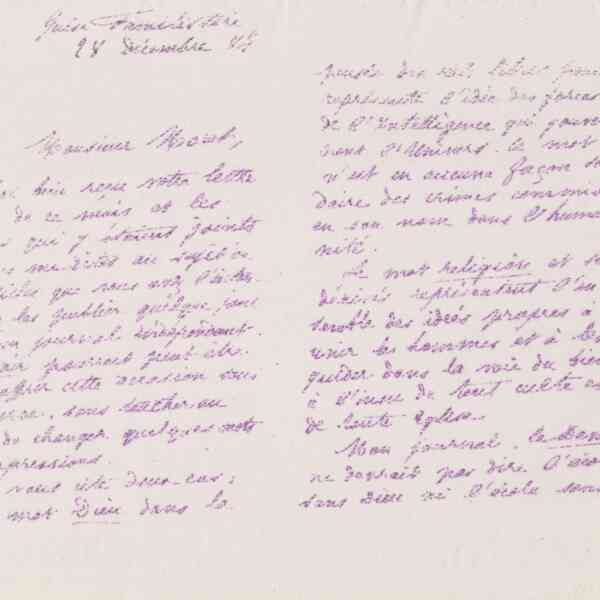 Guise Familistère
28 décembre
Monsieur
bien reçu votre lettre
de ce mois et les
qui y étaient joints
me dites au sujet
que vous avez l'inten-
les publier quelque jour
un journal indépendant.
pourrait peut être
cette occasion vous
sans toucher au
de changer quelques mots
expressions.
vous cite deux cas:
mot Dieu dans la
pensée des
représente l'idée des forces
de l'Intelligence qui gouver
nent l'Univers. Ce mot
n'est en aucune façon soli
daire des crimes commis
en son nom dans l'huma
nité.
Le mot religion et ses
dérivés représentent l'en
semble des idées propres à
unir les hommes et à les
guider dans la voie du bien
à l'insu de tout culte et
de toute Eglise.
Mon journal, le
ne devrait pas dire l'école
sans Dieu ni l'école sans